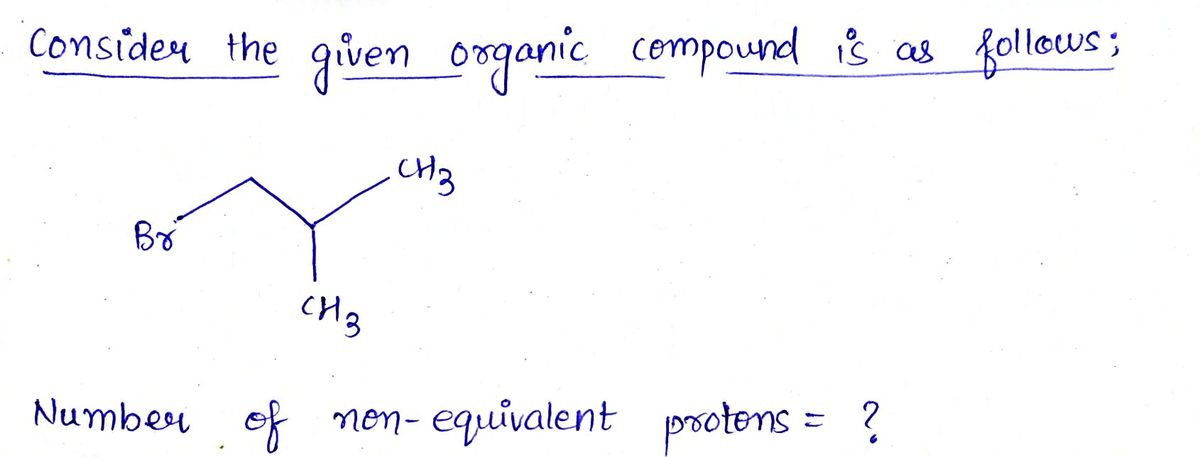 Consider the given organic compound is as follows;
CH3
Br
CH3
Number of non-equivalent protons = ?